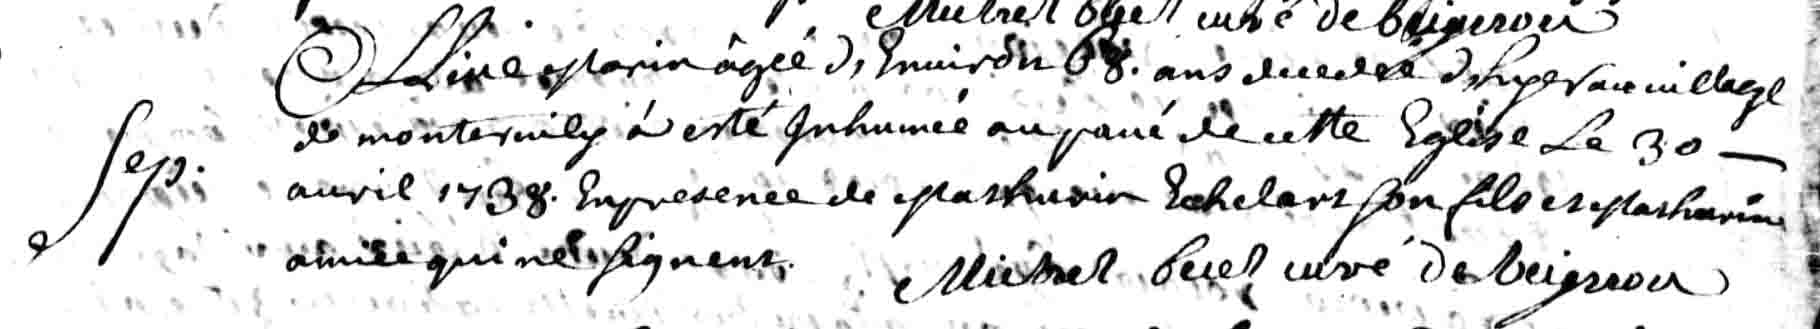 Michel buet curé de beignou
Line Marin âgéé d'Environ 68. ans decedeé d'hyer au village
de monternily á esté Inhumeé au pavé de cette Eglise Le 30
Sep.
avril 1738. En presence de Mathurin Echelart son fils et Mathurin
amice qui ne signent.
Michel buet curé de beignou